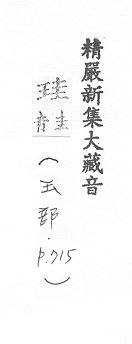 精嚴新集大藏音
珪 音圭
(玉部.p.715)